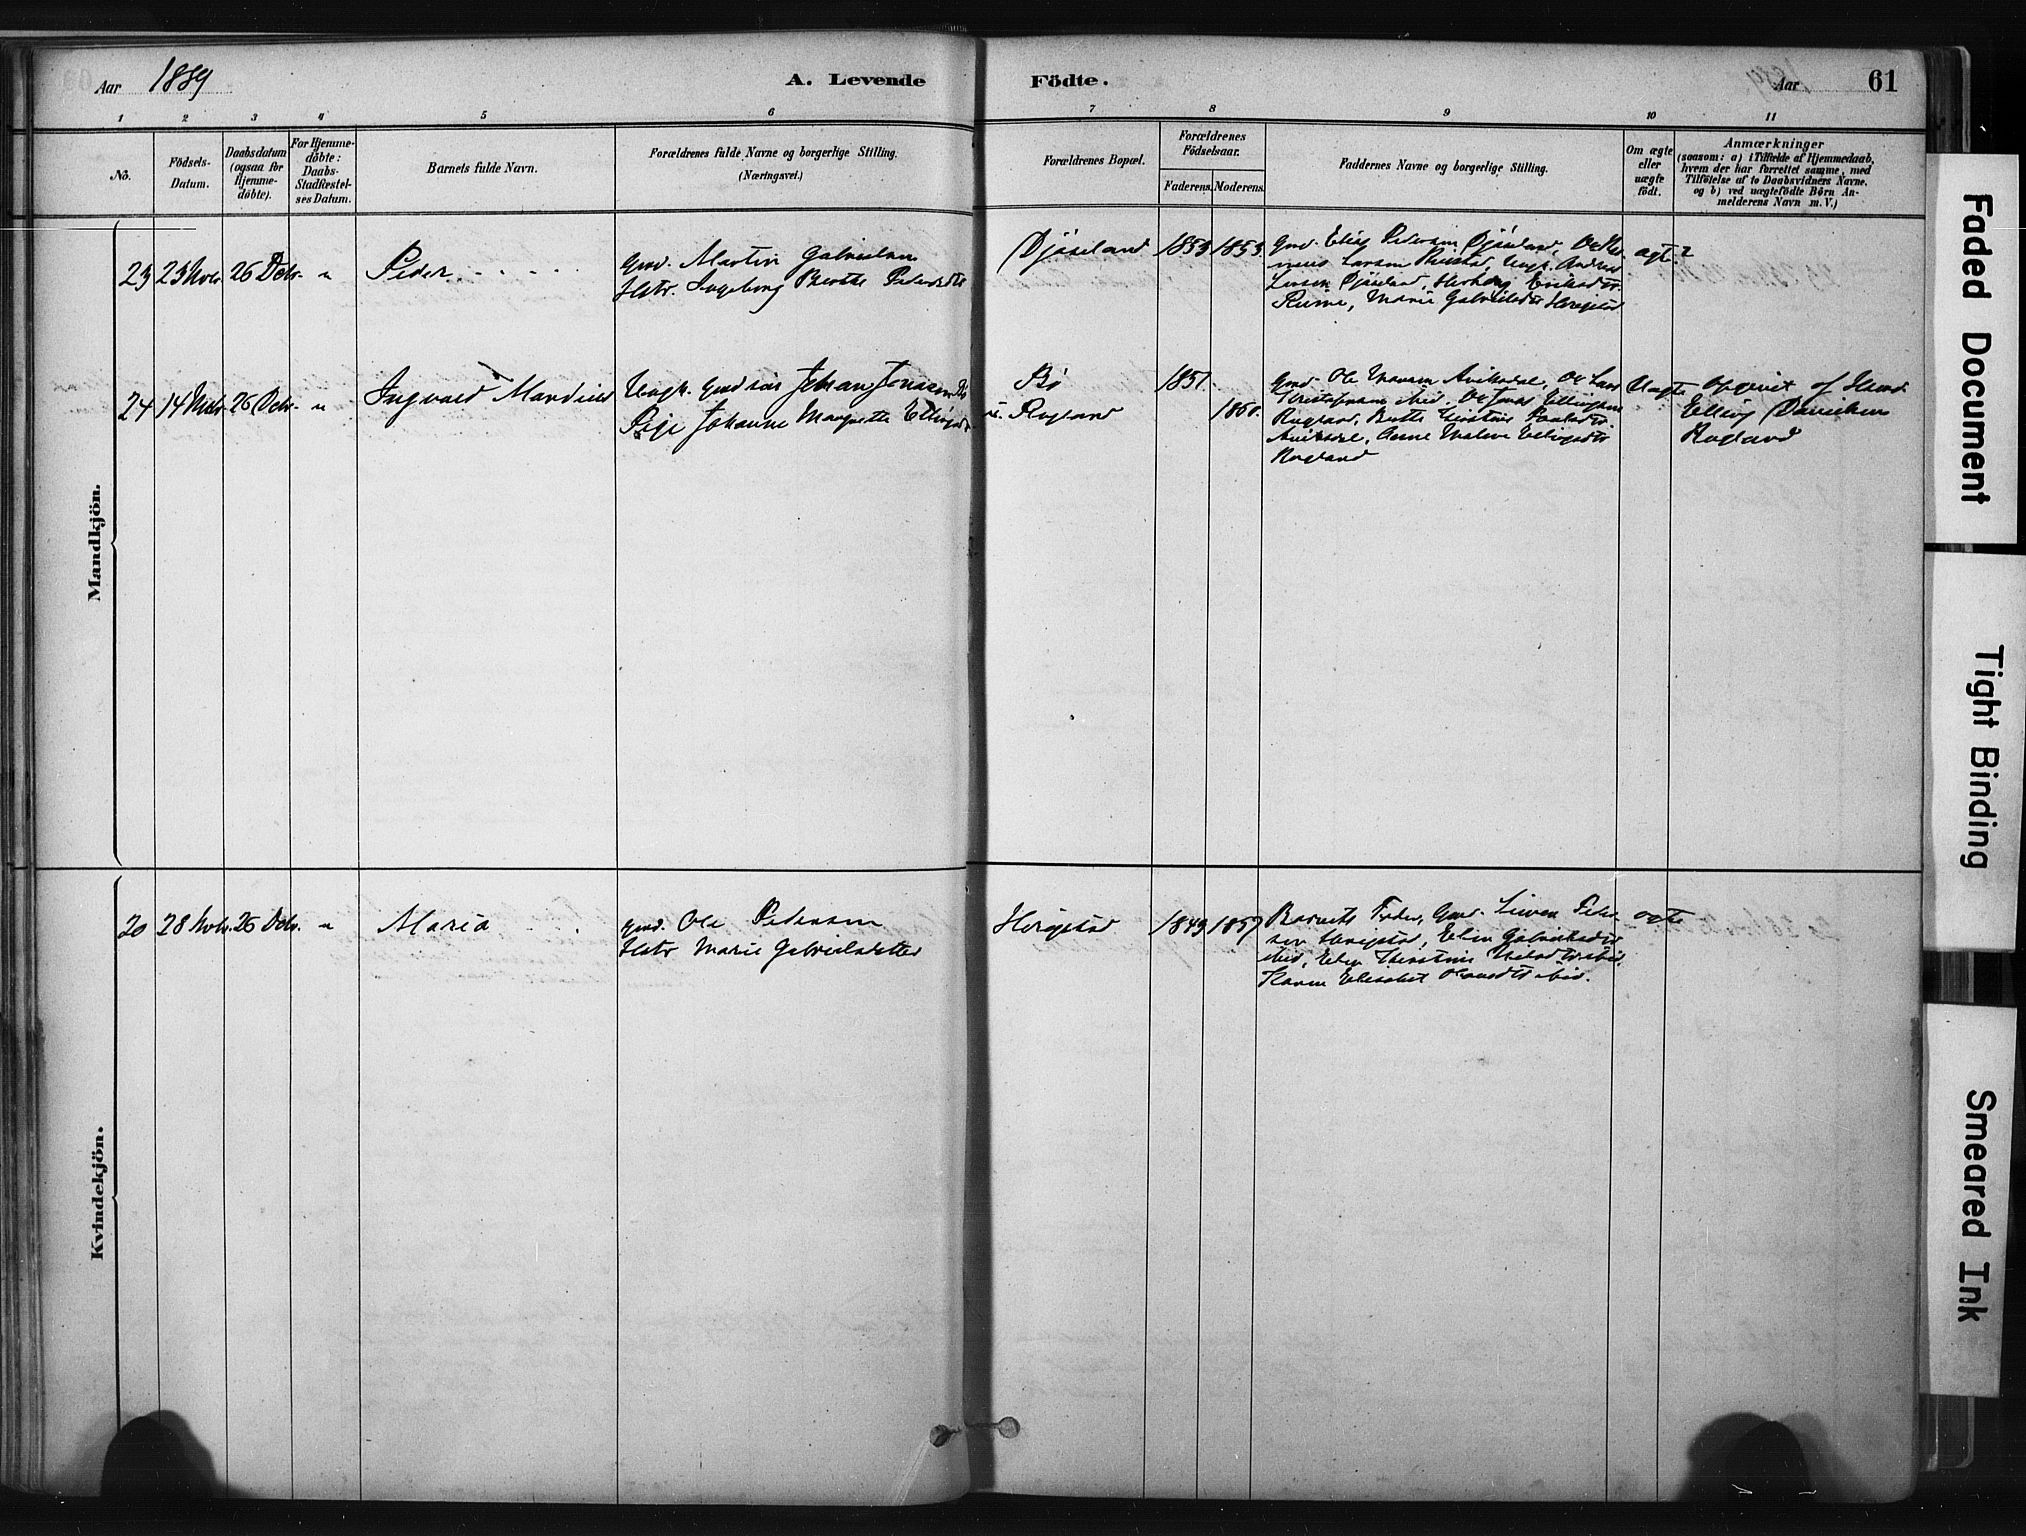 Aar 1889 A. Levende Födte. Aar 1889. 61
1 2 3 4 5 6 7 8 9 10 11
No.
Födsels-
Datum.
Daabsdatum
(ogsaa för
Hjemme-
döbte).
For Hjemme-
döbte:
Daabs-
Stadfæstel-
ses Datum.
Barnets fulde Navn.
Forældrenes fulde Navne og borgerlige Stilling.
(Næringsvei.)
Forældrenes Bopæl.
Forældrenes
Födselsaar.
Faderens. Moderens.
Faddernes Navne og borgerlige Stilling.
Om ægte
eller
uægte
födt.
Anmærkninger
(saasom: a) i Tilfælde af Hjemmedaab,
hvem der har forrettet samme, med
Tilföielse af to Daabsvidners Navne,
og b) ved uægtefödte Börn An-
melderens Navn m. V.)
Mandkjön.
23 23 Novbr. 26 Decbr. " Peder
Gmd. Martin Gabrielsen
Hstr. Ingeborg Berthe Pedersdtr
Djöseland 1853 1853
Gmd. Elias Pedersen Djöseland,
Larsen Ungk. Andreas
Larsen Djöseland, Eriksdtr
Marie Gabrielsdtr Herigstad
ægte
24 14 26 Decbr. " Ingvald Mandius
Ungk. Gmdsön Johan Jonassen
Pige Johanne Margrethe Ellingsdtr
Bö
Rogland
1851.
1860.
Gmd. Ole Aviksdal, Lars
ibid, Jonas Ellingsen
Rogland, Berthe
Malene Ellingsdtr
Rogland
Uægte
Opgivet af Gmd.
Elling Danielsen
Rogland
Kvindekjön.
20 28 Novbr. 26 Decbr. " Maria
Gmd. Ole Pedersen
Hstr Marie Gabrielsdatter
Herigstad 1849 1857
Barnets Fader, Gmd. Peder-
sen Herigstad, Elen Gabrielsdtr
ibid, ibid,
Karen Elisabet ibid.
ægte
Faded Document
Tight Binding
Smeared Ink